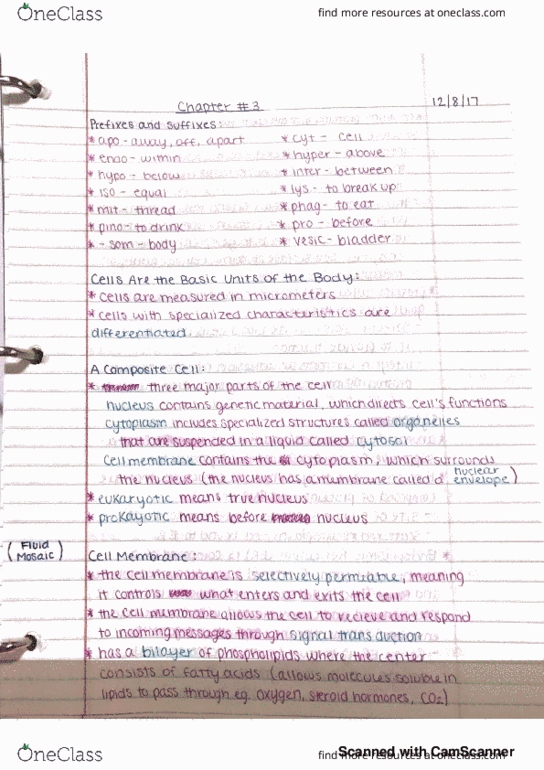 OneClass
find more resources at oneclass.com
Chapter #3
12/8/17
Prefixes and Suffixes:
* apo - away, off, apart
* cyt - cell
* endo - within
* hyper - above
* hypo - below
* inter - between
* iso - equal
* lys - to break up
* mit - thread
* phag - to eat
* pino - to drink
* pro - before
* - som - body
* vesic - bladder
Cells Are the Basic Units of the Body:
* cells are measured in micrometers
* cells with specialized characteristics are
differentiated.
A Composite Cell:
* three major parts of the cell
nucleus contains genetic material, which directs cell's functions
cytoplasm includes specialized structures called organelles
that are suspended in a liquid called cytosol
cell membrane contains the cytoplasm, which surrounds
the nucleus (the nucleus has a membrane called a nuclear envelope)
* eukaryotic means true nucleus
* prokayotic means before nucleus
(Fluid Mosaic)
Cell Membrane:
* the cell membrane is selectively permeable, meaning
it controls what enters and exits the cell
* the cell membrane allows the cell to recieve and respond
to incoming messages through signal transduction
* has a bilayer of phospholipids where the center
consists of fatty acids (allows molecules soluble in
lipids to pass through eg. oxygen, steroid hormones, CO2)
OneClass
find more resources at oneclass.com
Scanned with CamScanner